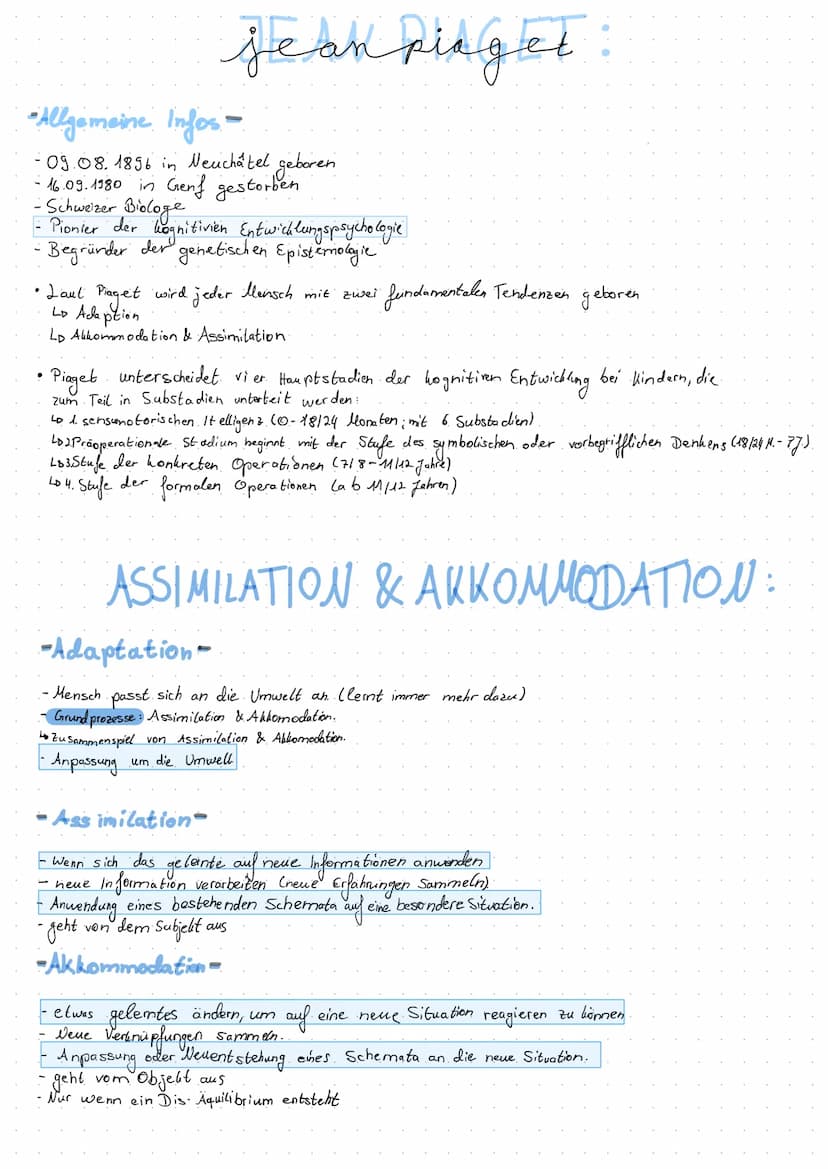 JEAN PIAGET:
jean piaget
-Allgemeine Infos-
- 09.08.1896 in Neuchâtel geboren
- 16.09.1980 in Genf gestorben
- Schweizer Biologe
- Pionier der kognitivien Entwicklungspsychologie
- Begründer der genetischen Epistemologie
• Laut Piaget wird jeder Mensch mit zwei fundamentalen Tendenzen geboren
↳ Adaption
↳ Akkommodation & Assimilation
• Piaget unterscheidet vier Hauptstadien der kognitiven Entwicklung bei Kindern, die
zum Teil in Substadien unterteit werden:
↳ 1. sensumotorischen Itelligenz (0-18/24 Monaten; mit 6 Substadien)
↳ 2 Präoperationale Stadium beginnt mit der Stufe des symbolischen oder vorbegrifflichen Denkens (18/24 M.- 7J)
↳ 3.Stufe der konkreten Operationen (7/8-11/12 Jahre)
↳ 4. Stufe der formalen Operationen (ab 11/12 Jahren)
ASSIMILATION & AKKOMMODATION:
-Adaptation-
- Mensch passt sich an die Umwelt an (lernt immer mehr dazu)
- Grundprozesse: Assimilation & Akkomodation.
↳ Zusammenspiel von Assimilation & Akkomodation.
- Anpassung um die Umwelt
- Assimilation-
- Wenn sich das gelernte auf neue Informationen anwenden
- neue Information verarbeiten (neue Erfahrungen Sammeln)
- Anwendung eines bestehenden Schemata auf eine besondere Situation.
- geht von dem Subjekt aus
-Akkommodation-
- etwas gelerntes ändern, um auf eine neue Situation reagieren zu können
- Neue Verknüpfungen sammeln.
- Anpassung oder Neuentstehung eines Schemata an die neue Situation.
- geht vom Objekt aus
- Nur wenn ein Dis-Äquilibrium entsteht